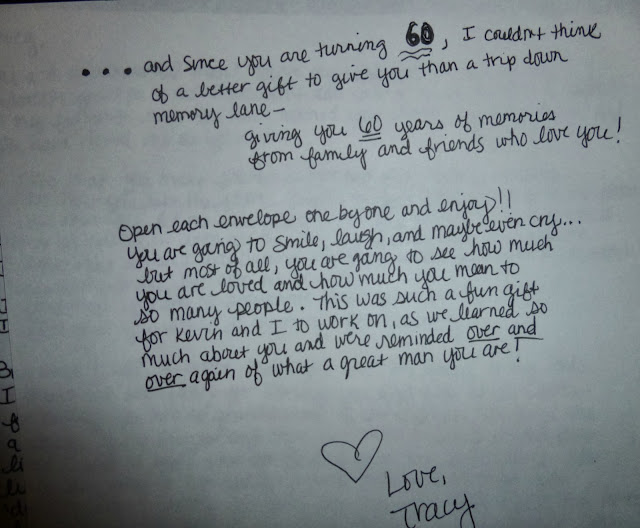 ... and since you are turning 60, I couldn't think
of a better gift to give you than a trip down
memory lane-
giving you 60 years of memories
from family and friends who love you!
Open each envelope one by one and enjoy!!
You are going to smile, laugh, and maybe even cry...
but most of all, you are going to see how much
you are loved and how much you mean to
so many people. This was such a fun gift
for Kevin and I to work on, as we learned so
much about you and were reminded over and
over again of what a great man you are!
Love,
Tracy